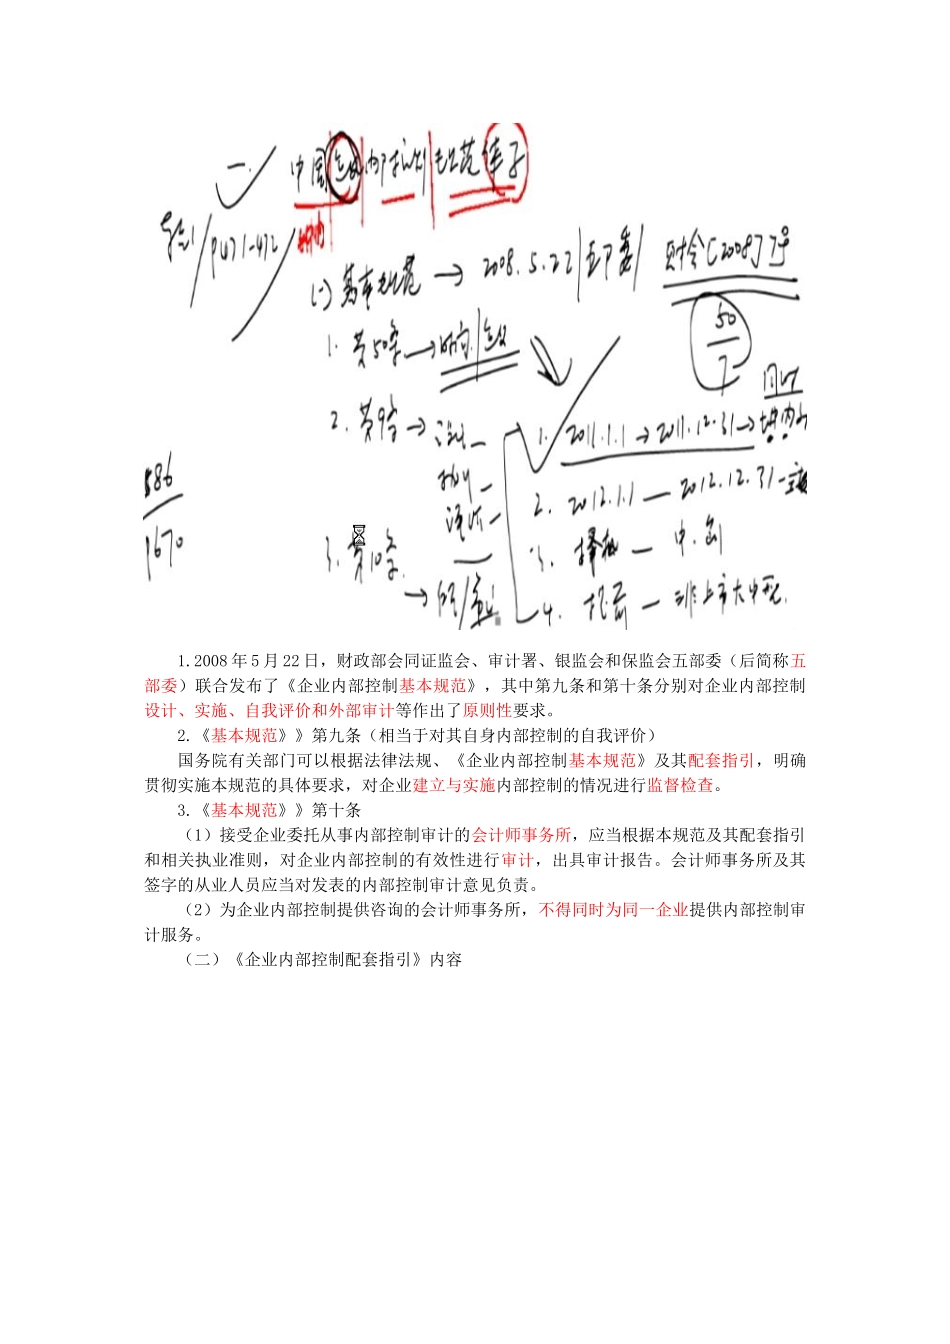 一、中国企业内部控制规范体系
P471-472
(一)基本规范→2008.5.22|五部委|财会[2008]7号
50
7
1.第50条→时间|企业
同时
2.第9条→设计
1. 2011.1.1→2011.12.31→境内外
执行
586
2. 2012.1.1—2012.12.31—主板
1670
评价
3.第10条
3. 择机—中、创
4. 提前—非上市大中型
1.2008 年 5 月 22 日，财政部会同证监会、审计署、银监会和保监会五部委（后简称五
部委）联合发布了《企业内部控制基本规范》，其中第九条和第十条分别对企业内部控制
设计、实施、自我评价和外部审计等作出了原则性要求。
2.《基本规范》》第九条（相当于对其自身内部控制的自我评价）
国务院有关部门可以根据法律法规、《企业内部控制基本规范》及其配套指引，明确
贯彻实施本规范的具体要求，对企业建立与实施内部控制的情况进行监督检查。
3.《基本规范》》第十条
（1）接受企业委托从事内部控制审计的会计师事务所，应当根据本规范及其配套指引
和相关执业准则，对企业内部控制的有效性进行审计，出具审计报告。会计师事务所及其
签字的从业人员应当对发表的内部控制审计意见负责。
（2）为企业内部控制提供咨询的会计师事务所，不得同时为同一企业提供内部控制审
计服务。
（二）《企业内部控制配套指引》内容